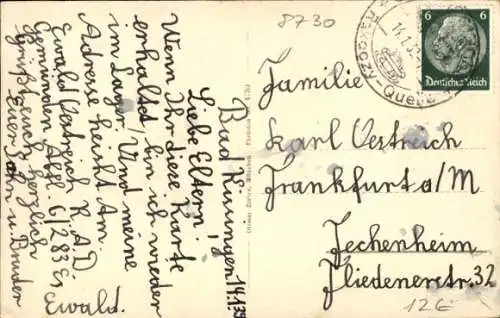 8730
Bad Kissingen, 14.1.39
Liebe Eltern.
Wenn Ihr diese Karte
erhaltet, bin ich wieder
im Lager. Und meine
Adresse heißt Am.
Ewald Oestreich R.A.D.
Gemünden Abtl. 6/283 Es
Grüßt euch herzlich
Euer Sohn u Bruder
Ewald.
6 6
Deutsches Reich
Quelle
Familie
Karl Oestreich
Frankfurt a/M
Fechenheim
Fliedenerstr. 32
12€